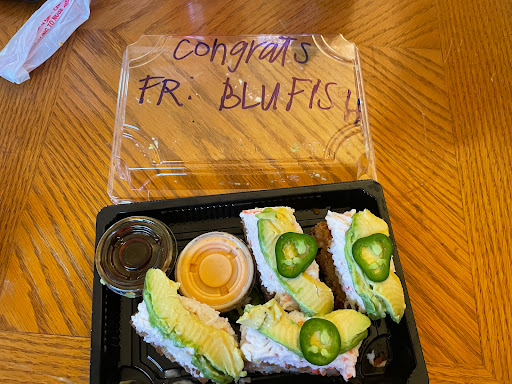 Congrats
FR. BLUFISH